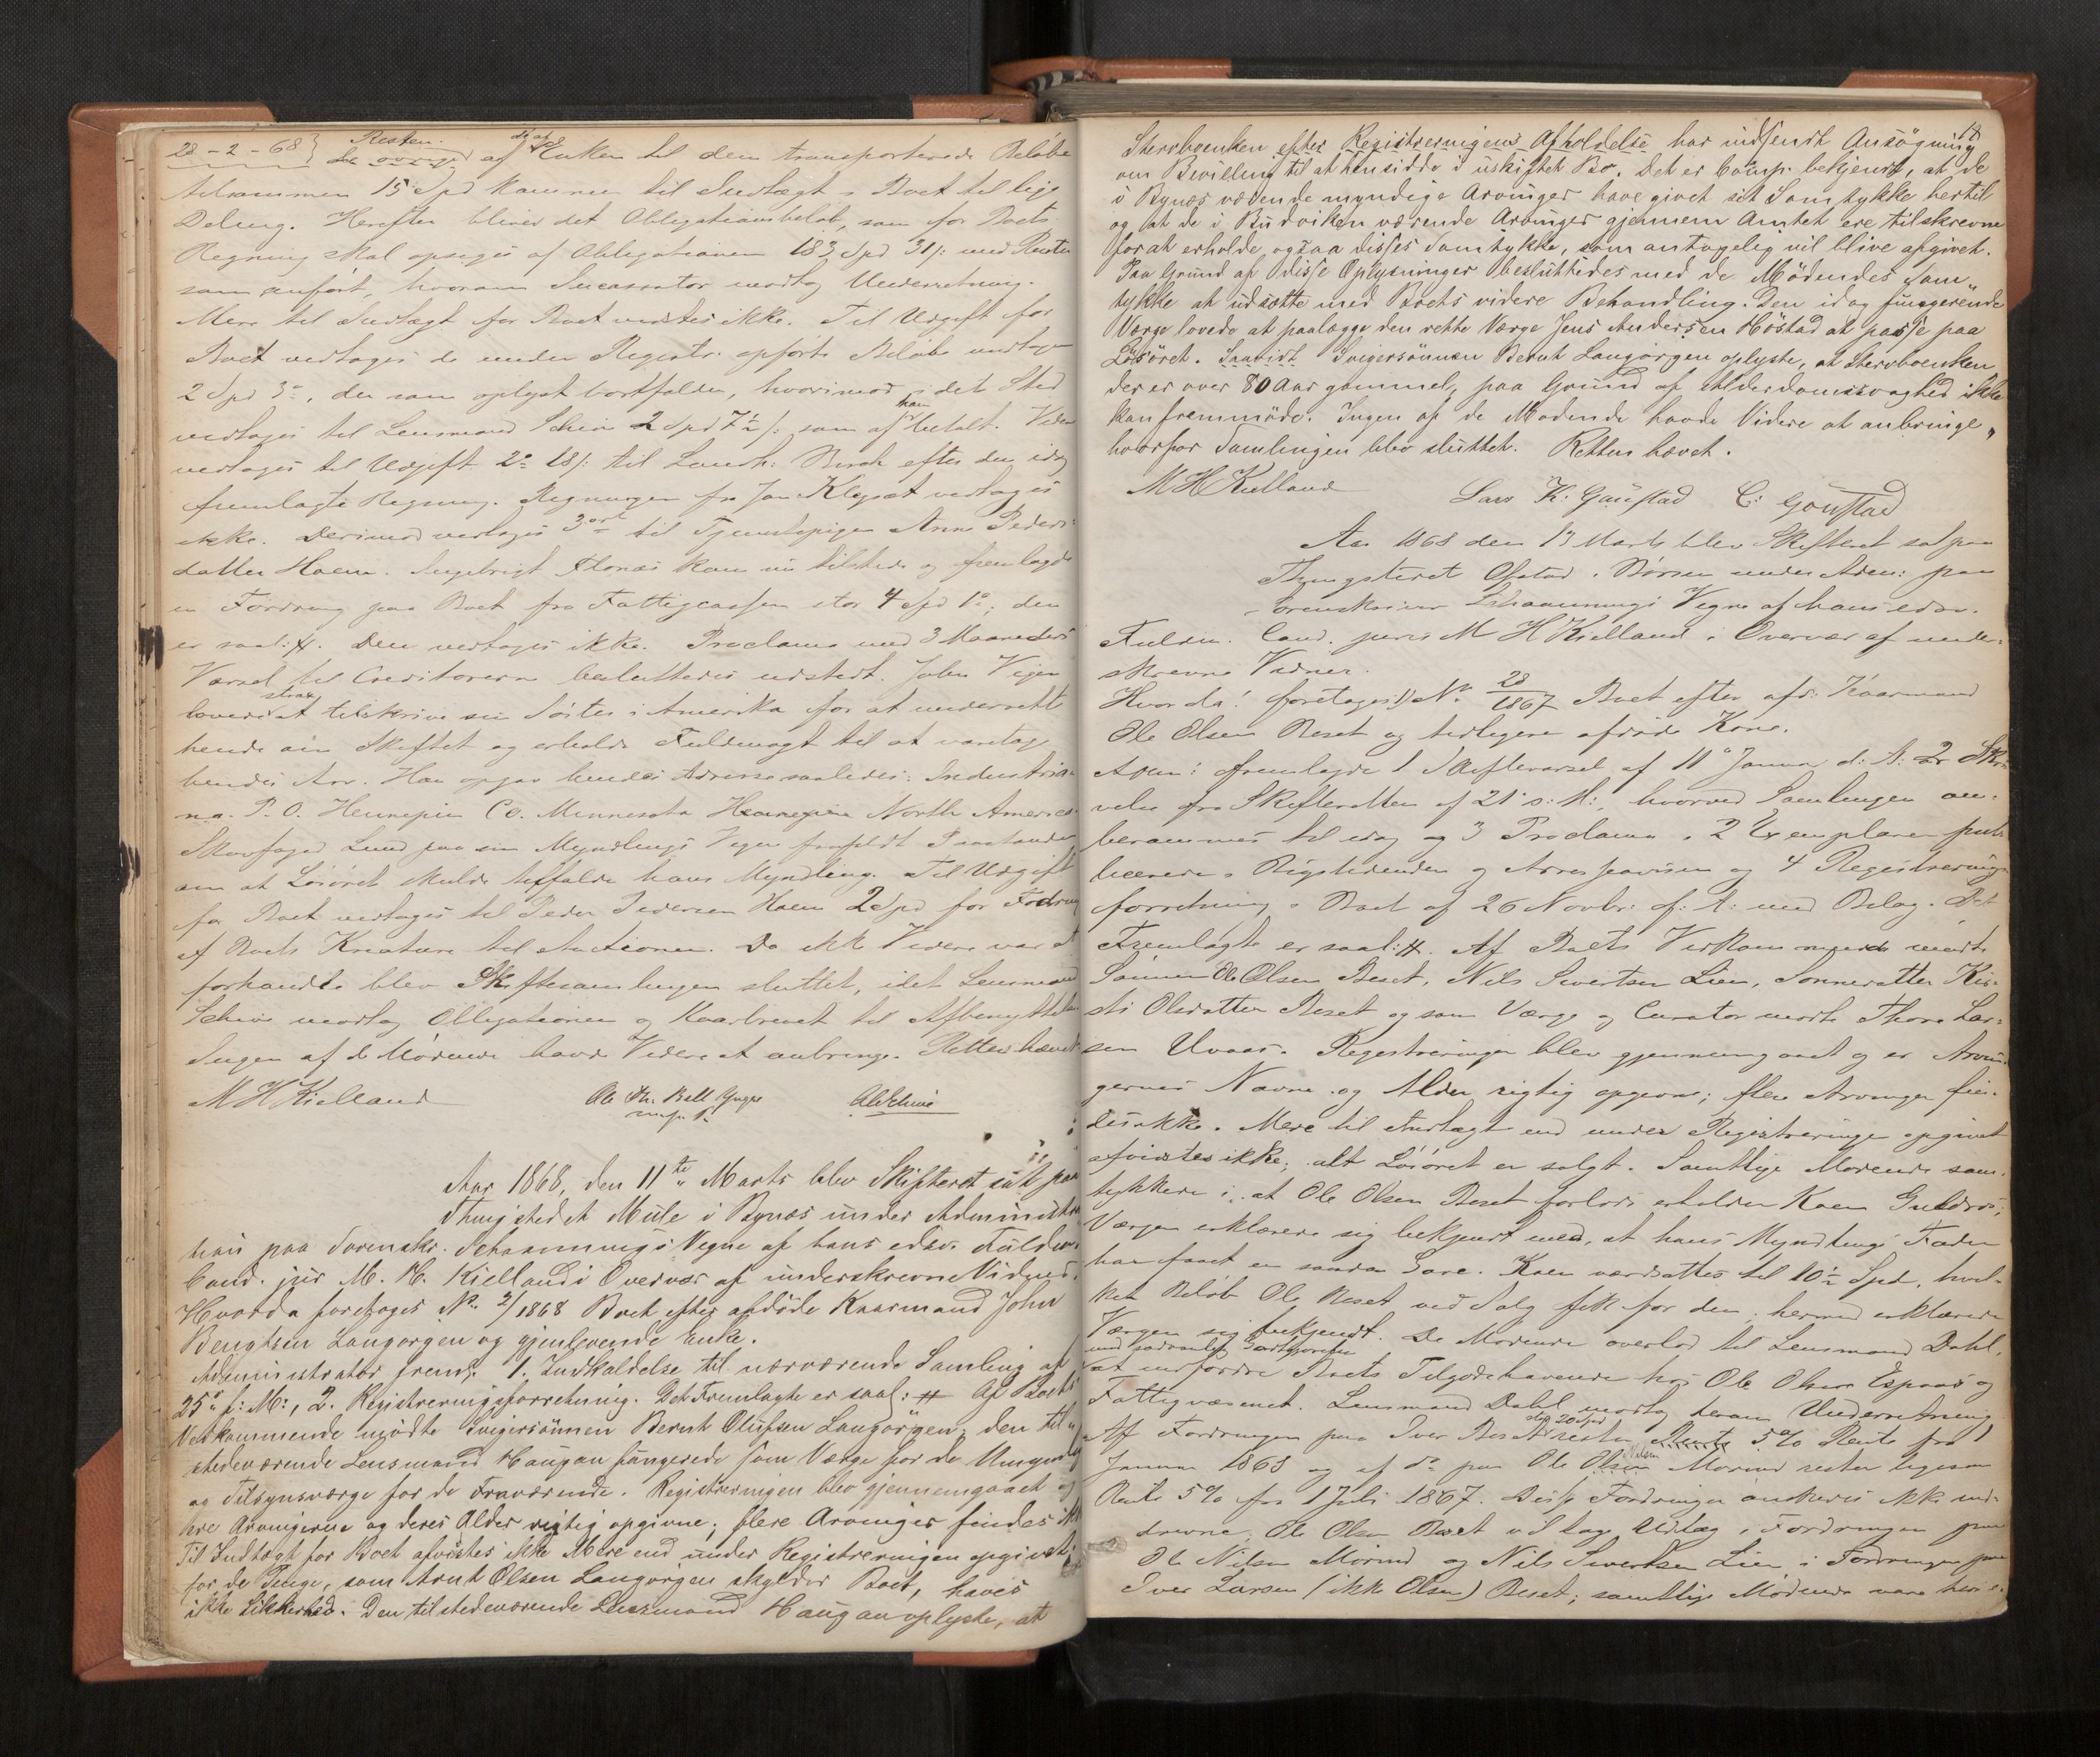 28-2-68} Resten af Enken til dem transporterede Beløb
tilsammen 15 Spd kommer til Indtægt i Boet til lige
Deling. Herefter bliver det Obligationsbeløb, som for Boets
Regning skal opsiges af Obligationen 183 Spd 31/: med Renter
som anført, hvorom Incassator modtog Underretning.
Mere til Indtægt for Boet vidstes ikke. Til Udgift for
Boet vedtages de under Registr. opførte Beløbe undtagen
2 Spd 3, der som oplyst bortfalder, hvorimod i det Sted
vedtages til Lensmand Schive 2 Spd 7½/: som af ham betalt. Videre
vedtages til Udgift 2 18/: til Landh: Birch efter den idag
fremlagte Regning. Regningen fra Jon Klepsæt vedtages
ikke. Derimod vedtages 3 ort til Tjenestepigen Anne Peders-
datter Hoem. Ingebrigt kom nu tilstede og fremlagde
en Fordring paa Boet fra Fattigcassen stor 4 Spd 1; den
er saal: #. Den vedtages ikke. Proclama med 3 Maaneders
Varsel til Creditorerne besluttedes udstedt. John
lovede strax at tilskrive sin Söster i Amerika for at underrette
hende om Skiftet og erholde Fuldmagt til at varetage
hendes Arv. Han opgav hendes Adresse saaledes: Industria-
na. P. O. Hennepin Co. Minnesota North America.
Skovfoged Lund paa sin Myndlings Vegne frafaldt Paastanden
om at Lösöret skulde tilfalde hans Myndling. Til Udgift
for Boet vedtages til Peder Pedersen Hoem 2 Spd for Fodring
af Boets Kreature til Auctionen. Da ikke Videre var at
forhandle blev Skiftesamlingen sluttet, idet Lensmand
Schive modtog Obligationen og Kaarbrevet til Afbenyttelse
Ingen af de Mödende havde Videre at anbringe. Retten hævet.
M H Kielland
Aar 1868, den 11te Marts blev Skifteret sat paa
Thingstedet Mule i Bynæs under Administra-
tion paa Sorenskr. Schaannings Vegne af hans edsv. Fuldm.
Cand. jur M. H. Kielland i Overvær af underskrevne Vidner.
Hvorda foretoges No. 2/1868 Boet efter afdöde Kaarmand John
Bengtsen Langörgen og gjenlevende Enke.
Administrator freml. 1. Indkaldelse til nærværende Samling af
25 f: M:, 2. Registreringsforretning. Det Fremlagte er saal: # Af Boets
Vedkommende mödte Svigersönnen Berent Olufsen Langörgen; den til-
stedeværende Lensmand Haugan fungerede som Værge for de Umyndige
og Tilsynsværge for de Fraværende. Registreringen blev gjennemgaaet og
ere Arvingerne og deres Alder rigtig opgivne; flere Arvinger findes ikke
Til Indtægt for Boet afvistes ikke Mere end under Registreringen opgivet;
for de Penge, som Arnt Olsen Langörgen skylder Boet, haves
ikke Sikkerhed. Den tilstedeværende Lensmand Haugan oplyste, at
18
Sterboenken efter Registreringens Afholdelse har indsendt Ansögning
om Bevilling til at hensidde i uskiftet Bo. Det er Comp. bekjendt, at de
i Bynæs værende myndige Arvinger have givet sit Samtykke hertil
og at de i Budviken værende Arvinger gjennem Amtet ere tilskrevne
for at erholde ogsaa disses Samtykke, som antagelig vil blive afgivet.
Paa Grund af disse Oplysninger besluttedes med de Mödendes Sam-
tykke at udsætte med Boets videre Behandling. Den idag fungerende
Værge lovede at paalægge den rette Værge Jens Andersen Höstad at passe paa
Lösöret. Svigersönnen Berent Langörgen oplyste, at Sterboenken,
der er over 80 Aar gammel, paa Grund af Alderdomssvaghed ikke
kan fremmöde. Ingen af de Mödende havde Videre at anbringe,
hvorfor Samlingen blev sluttet. Retten hævet.
M H Kielland Lars K. Gaustad C: Gaustad
Aar 1868 den 13 Marts blev Skifteret sat paa
Thingstedet Ofstad i Börsen under Adm: paa
Sorenskriver Schaannings Vegne af hans edsv.
Fuldm. Cand. juris M H Kielland i Overvær af under-
skrevne Vidner.
Hvorda: foretoges 1) No 28/1867 Boet efter afd: Kaarmand
Ole Olsen Reset og tidligere afdöde Kone.
Adm: fremlagde 1 Skiftevarsel af 11 Januar d: A: 2 Skri-
velse fra Skifteretten af 21 s: M:, hvorved Samlingen om-
berammes til idag og 3 Proclama i 2 Exemplarer pub-
licerede i Rigstidenden og Adresseavisen og 4 Registrerings-
forretning i Boet af 26 Novbr: f: A: med Bilag. Det
Fremlagte er saal: #. Af Boets Vedkommende mödte
Sönnen Ole Olsen Reset, Nils Sivertsen Lien, Sönnedatter Kir-
sti Olsdatter Reset og som Værge og Curator mödte Thore Lar-
sen Uvaas. Registreringen blev gjennemgaaet og er Arvin-
gernes Navne og Alder rigtig opgivne; flere Arvinger fin-
des ikke. Mere til Indtægt end under Registreringen opgivet
afvistes ikke; alt Lösöret er solgt. Samtlige Mödende sam-
tykkede i, at Ole Olsen Reset forlods erholder Koen Guldros;
Værgen erklærede sig bekjendt med, at hans Myndlings Fader
har faaet en saadan Gave. Koen værdsattes til 10½ Spd, hvil-
ket Beløb Ole Reset ved Salg fik for den; hermed erklærede
Værgen sig bekjendt. De Mödende overlod til Lensmand Dahl,
at indfordre Boets Tilgodehavende hos Ole Olsen Espaas og
Fattigvæsenet. Lensmand Dahl modtog herom Underretning
Af Fordringen paa Iver Reset stor 20 Spd rester 5% Rente fra 1
Januar 1868 og af do paa Ole Nilsen Morind rester ligesaa
Rente 5% fra 1 Juli 1867. Disse Fordringer ansees ikke ind-
drevne. Ole Olsen Reset vil tage Udlæg i Fordringen paa
Ole Nilsen Morind og Nils Sivertsen Lien i Fordringen paa
Iver Larsen (ikke Olsen) Reset; samtlige Mödende vare heri e-